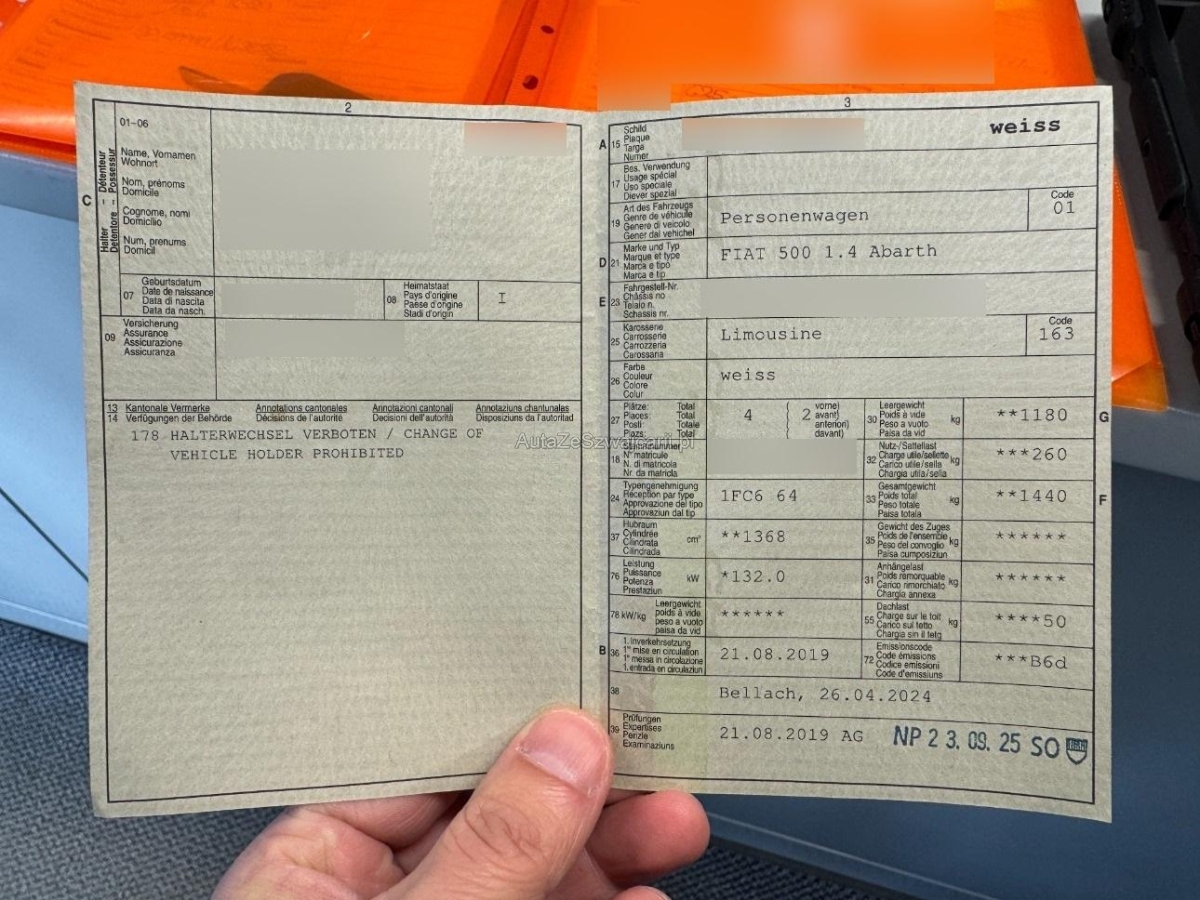 2
01-06
Halter - Détenteur
Detentore - Possessur
C
Name, Vornamen
Wohnort
Nom, prénoms
Domicile
Cognome, nomi
Domicilio
Num, prenums
Domicil
07
Geburtsdatum
Date de naissance
Data di nascita
Data da nasch.
08
Heimatstaat
Pays d'origine
Paese d'origine
Stadi d'origin
I
09
Versicherung
Assurance
Assicurazione
Assicuranza
13 Kantonale Vermerke Annotations cantonales Annotazioni cantonali Annotaziuns chantunales
14 Verfügungen der Behörde Décisions de l'autorité Decisioni dell'autorità Disposiziuns da l'autoritad
178 HALTERWECHSEL VERBOTEN / CHANGE OF
VEHICLE HOLDER PROHIBITED
AutaZeSzwajcarii.pl
3
A 15
Schild
Plaque
Targa
Numer
weiss
17
Bes. Verwendung
Usage spécial
Uso speciale
Diever spezial
19
Art des Fahrzeugs
Genre de véhicule
Genere di veicolo
Gener dal vehichel
Personenwagen
Code
01
D 21
Marke und Typ
Marque et type
Marca e tipo
Marca e tip
FIAT 500 1.4 Abarth
E 23
Fahrgestell-Nr.
Châssis no
Telaio n.
Schassis nr.
25
Karosserie
Carrosserie
Carrozzeria
Carossaria
Limousine
Code
163
26
Farbe
Couleur
Colore
Colur
weiss
27
Plätze: Total
Places: Total
Posti: Totale
Plazs: Total
4 ( 2
vorne)
avant)
anteriori)
davant)
30
Leergewicht
Poids à vide
Peso a vuoto
Paisa da vid
kg
**1180
G
18
Stammnummer
N° matricule
N. di matricola
Nr da matricla
32
Nutz-/Sattellast
Charge utile/sellette
Carico utile/sella
Chargia utila/sella
kg
***260
24
Typengenehmigung
Réception par type
Approvazione del tipo
Approvaziun dal tip
1FC6 64
33
Gesamtgewicht
Poids total
Peso totale
Paisa totala
kg
**1440
F
37
Hubraum
Cylindrée
Cilindrata
Cilindrada
cm³
**1368
35
Gewicht des Zuges
Poids de l'ensemble
Peso del convoglio
Paisa cumposiziun
kg
******
76
Leistung
Puissance
Potenza
Prestaziun
kW
*132.0
31
Anhängelast
Poids remorquable
Carico rimorchiato
Chargia annexa
kg
******
78 kW/kg
Leergewicht
poids à vide
peso a vuoto
paisa da vid
******
55
Dachlast
Charge sur le toit
Carico sul tetto
Chargia sin il tetg
kg
****50
B 36
1. Inverkehrsetzung
1re mise en circulation
1a messa in circolazione
1. entrada en circulaziun
21.08.2019
72
Emissionscode
Code émissions
Codice emissioni
Code d'emissiuns
***B6d
38
Bellach, 26.04.2024
39
Prüfungen
Expertises
Perizie
Examinaziuns
21.08.2019 AG
NP 23.09.25 SO